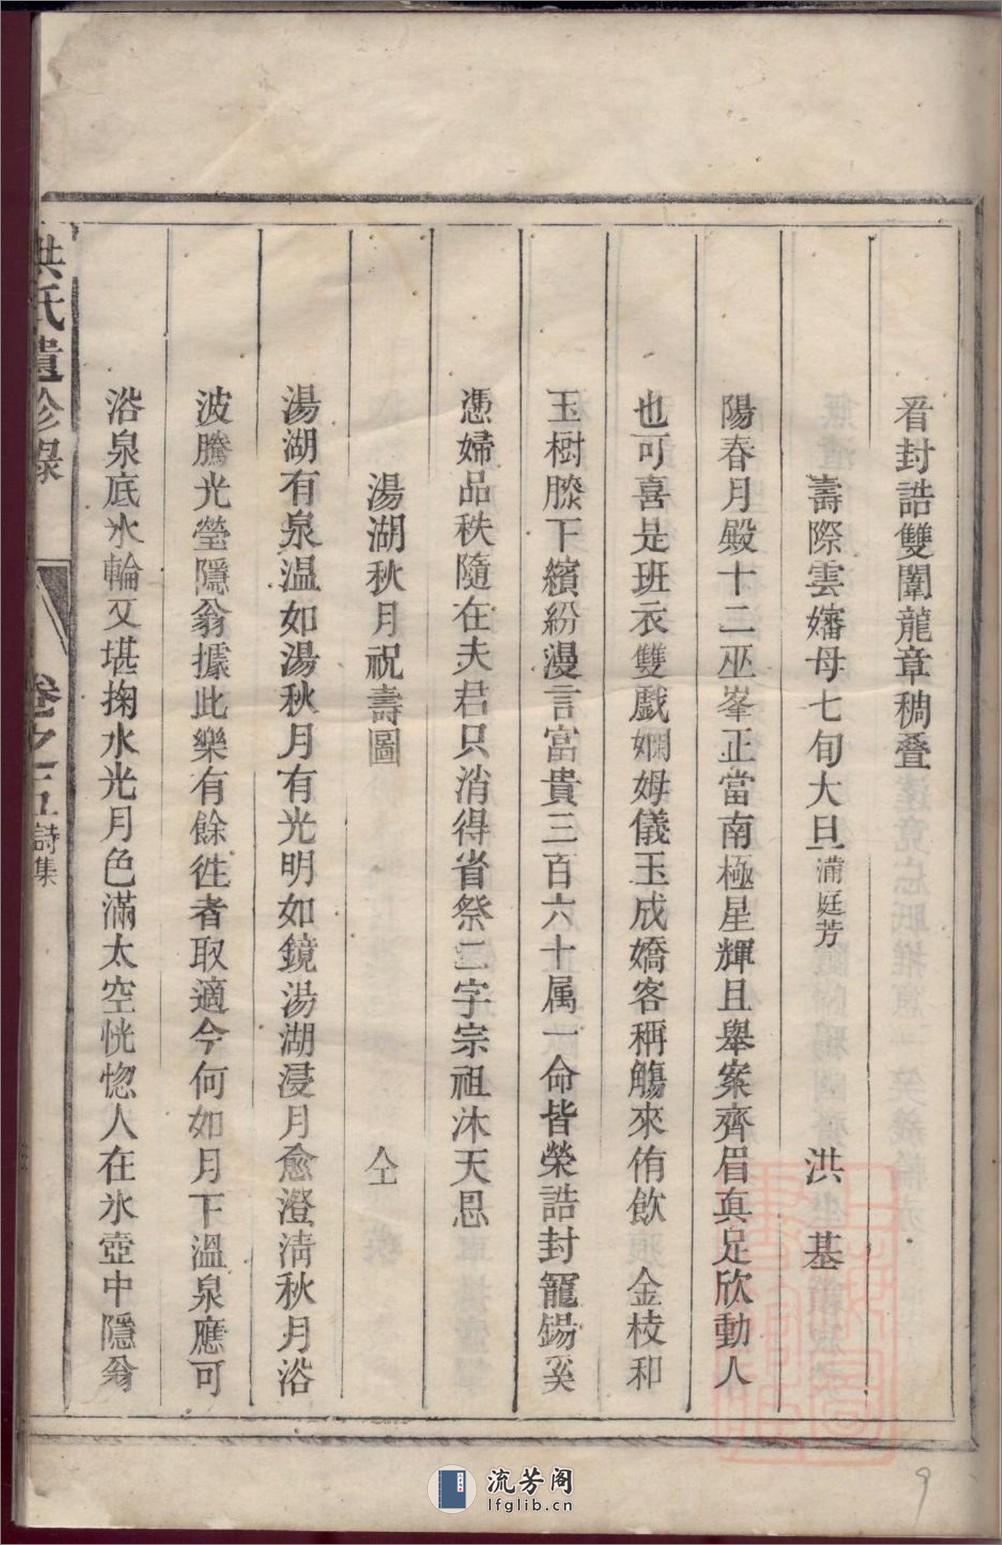 看封誥雙闈龍章稠疊
壽際雲嬸母七旬大旦 蒲庭芳 洪基
陽春月殿十二巫峯正當南極星輝且舉案齊眉真足欣動人
也可喜是班衣雙戲嫻姆儀玉成嬌客稱觴來侑飲 金枝和
玉樹膝下繽紛漫言富貴三百六十属一命皆榮誥封寵錫奚
憑婦品秩隨在夫君只消得省祭二字宗祖沐天恩
湯湖秋月祝壽圖 仝
湯湖有泉温如湯秋月有光明如鏡湯湖浸月愈澄清秋月浴
波騰光瑩隱翁據此樂有餘徃者取適今何如月下溫泉應可
浴泉底氷輪又堪掬水光月色滿太空恍惚人在氷壺中隱翁
洪氏遺珍錄 卷之五 詩集
流芳阁
lfglib.cn
9